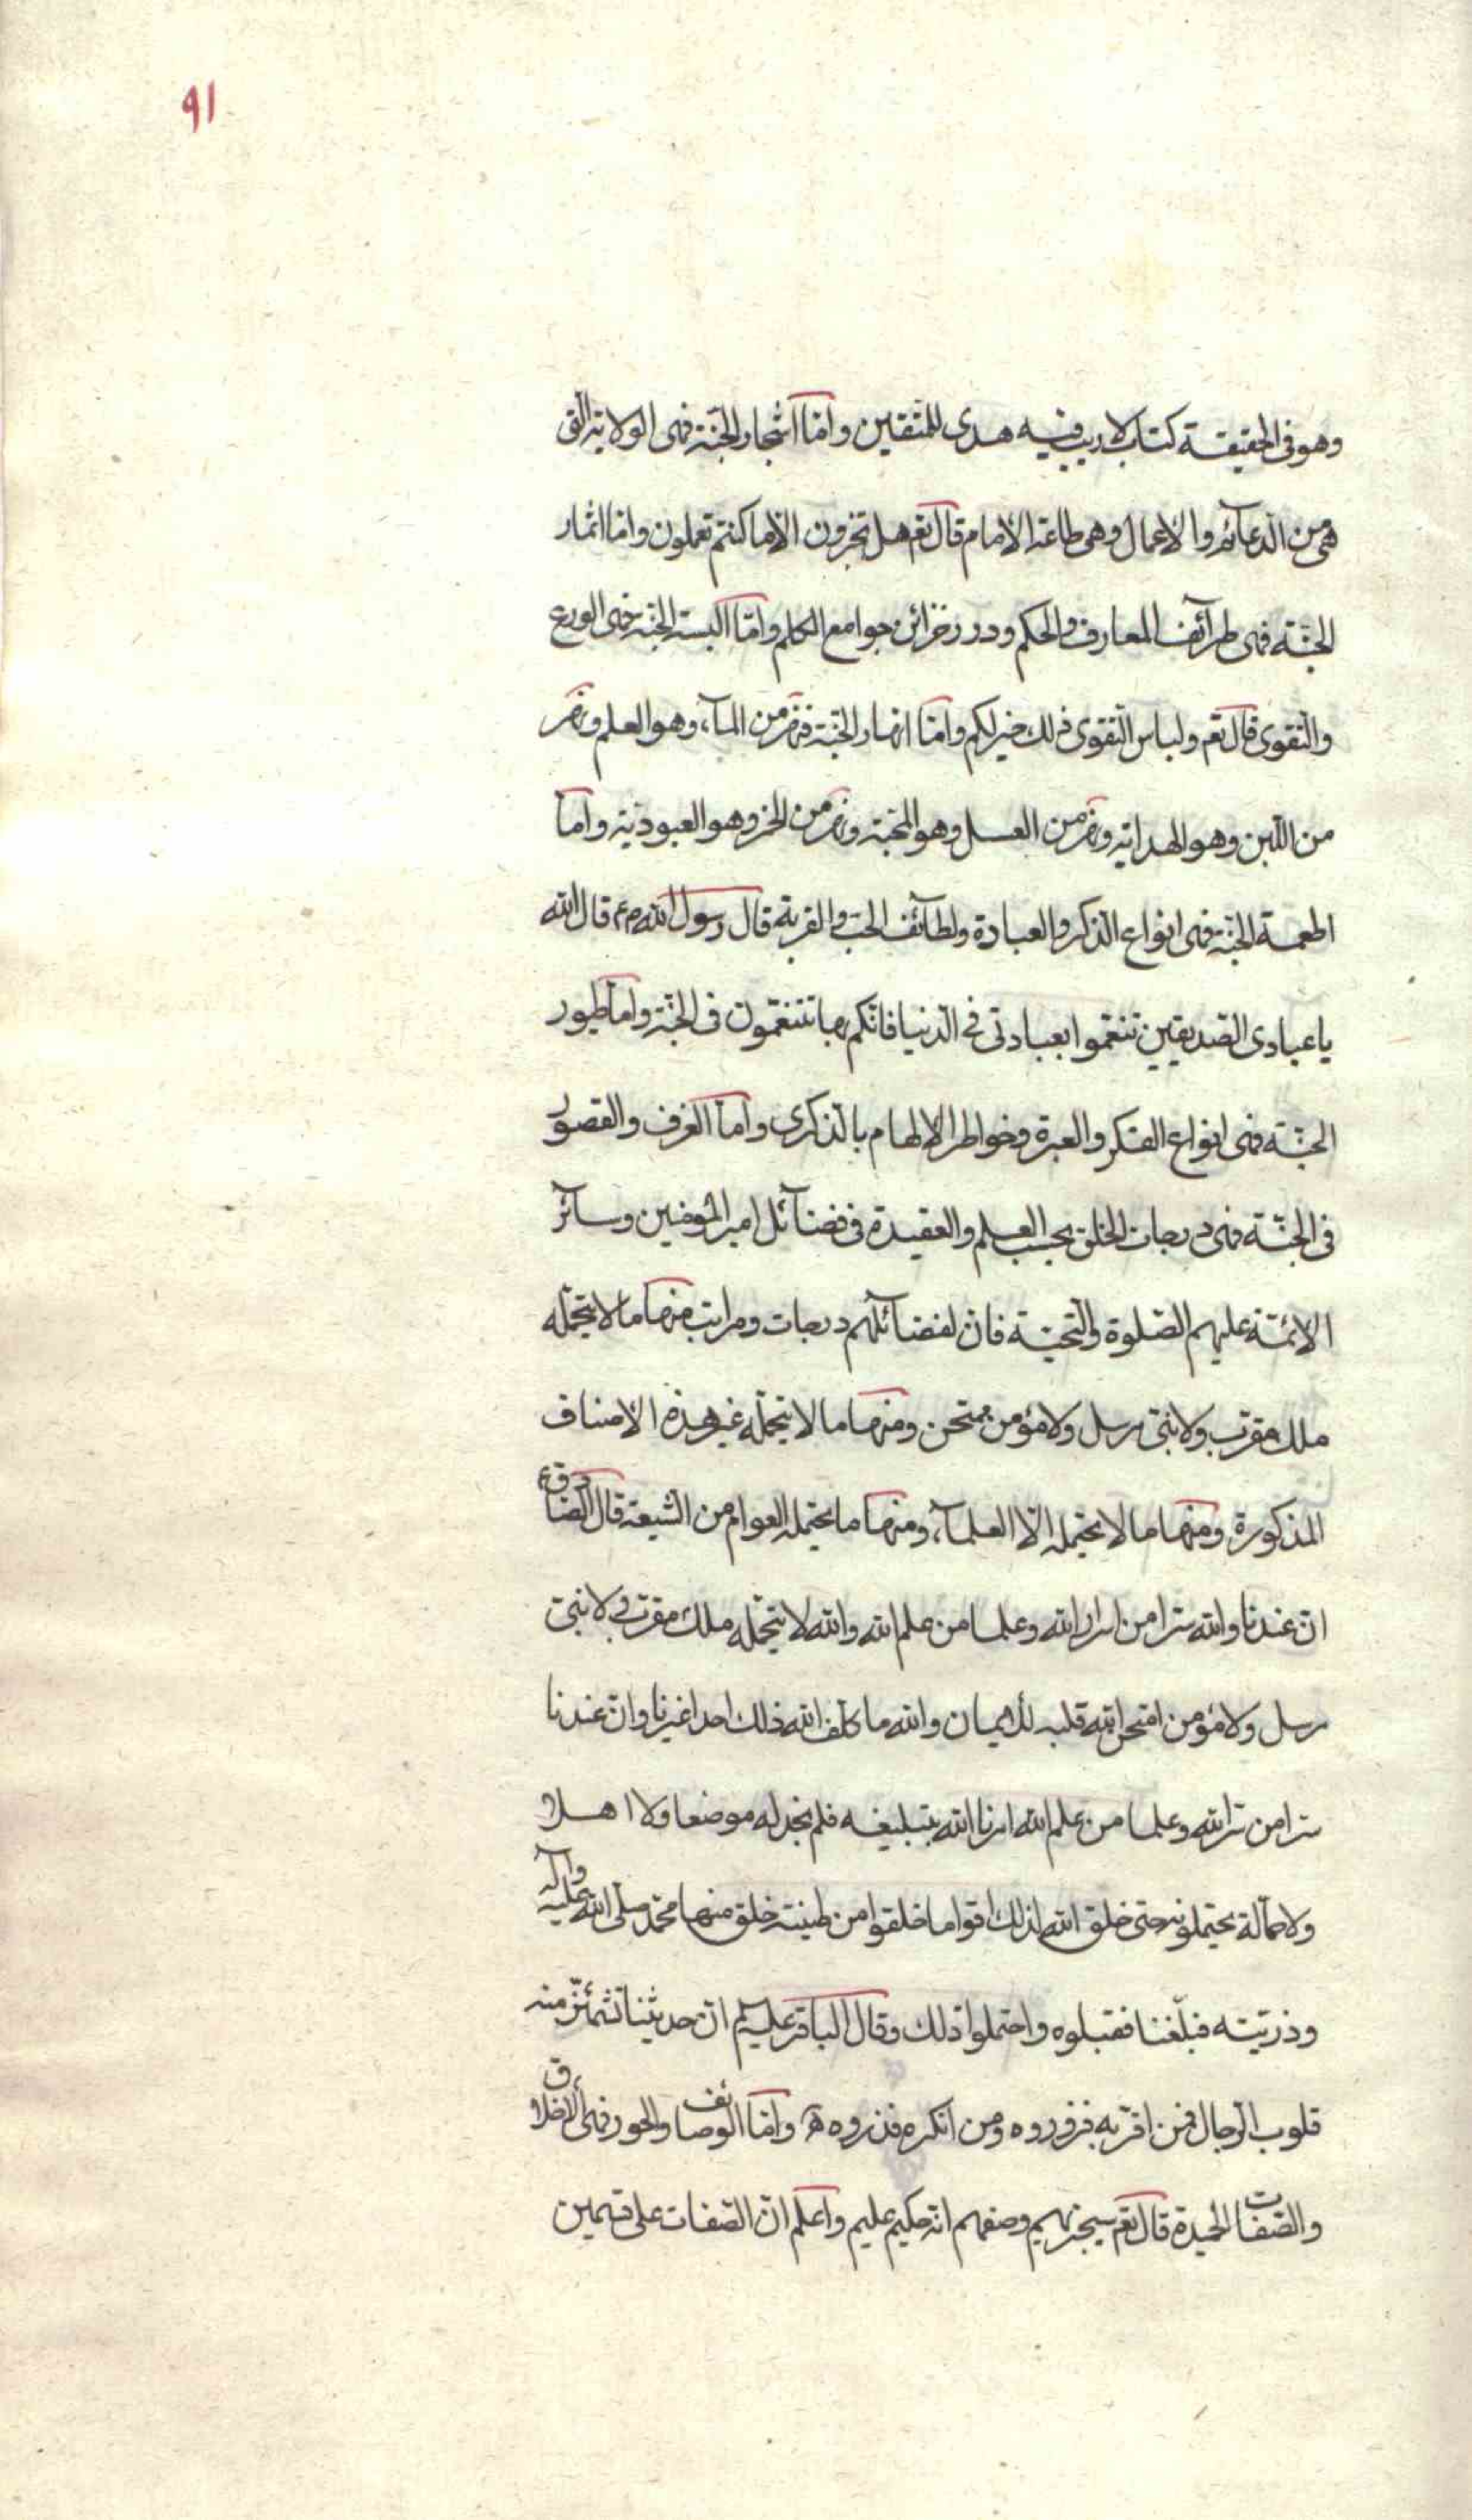 ٩١
وهو فى الحقيقة كتاب لا ريب فيه هدى للمتقين وامّا اشجار الجنّة فهى الولاية التى
هى من الدعائم والاعمال وهى طاعة الامام قال تع هل تجزون الّا ما كنتم تعملون وامّا اثمار
الجنّة فهى طرآئف المعارف والحكم ودرر خزائن جوامع الكلم وامّا البسة الجنّة فهى الورع
والتقوى قال تع ولباس التّقوى ذلك خير لكم وامّا انهار الجنّة فنهر من المآء وهو العلم ونهر
من اللّبن وهو الهداية ونهر من العسل وهو المحبّة ونهر من الخمر وهو العبوديّة وامّا
اطعمة الجنّة فهى انواع الذكر والعبادة ولطآئف الحبّ والقربة قال رسول الله ص ع قال الله
يا عبادى الصديقين تنعّموا بعبادتى فى الدّنيا فانّكم بها تتنعّمون فى الجنّة وامّا طيور
الجنّة فهى انواع الفكر والعبرة وخواطر الالهام بالذكرى وامّا الغرف والقصور
فى الجنّة فهى درجات الخلق بحسب العلم والعقيدة فى فضآئل امير المؤمنين وسآئر
الائمّة عليهم الصّلوة والتّحيّة فانّ لفضآئلهم درجات ومراتب منها ما لا يتحمّله
ملك مقرّب ولا نبىّ مرسل ولا مؤمن ممتحن ومنها ما لا يتحمّله غير هذه الاصناف
المذكورة ومنها ما لا يحتمله الّا العلمآء ومنها ما يحتمله العوام من الشّيعة قال الصّادق ع
انّ عندنا والله سرّا من اسرار الله وعلما من علم الله والله لا يتحمّله ملك مقرّب ولا نبىّ
مرسل ولا مؤمن امتحن الله قلبه للايمان والله ما كلّف الله ذلك احدا غيرنا وانّ عندنا
سرّا من سرّ الله وعلما من علم الله امرنا الله بتبليغه فلم نجد له موضعا ولا اهلا
ولا حمّالة يحتملونه حتى خلق الله لذلك اقواما خلقوا من طينة خلق منها محمّد صلّى الله عليه وآله
وذرّيّته فبلّغنا فقبلوه واحتملوا ذلك وقال الباقر عليه السلم انّ حديثنا تشمئزّ منه
قلوب الرّجال فمن اقرّ به فزيدوه ومن انكره فذروه وامّا الوصائف والحور فهى الاخلاق
والصّفات الحميدة قال تع سيجزيهم وصفهم انّه حكيم عليم واعلم انّ الصّفات على قسمين